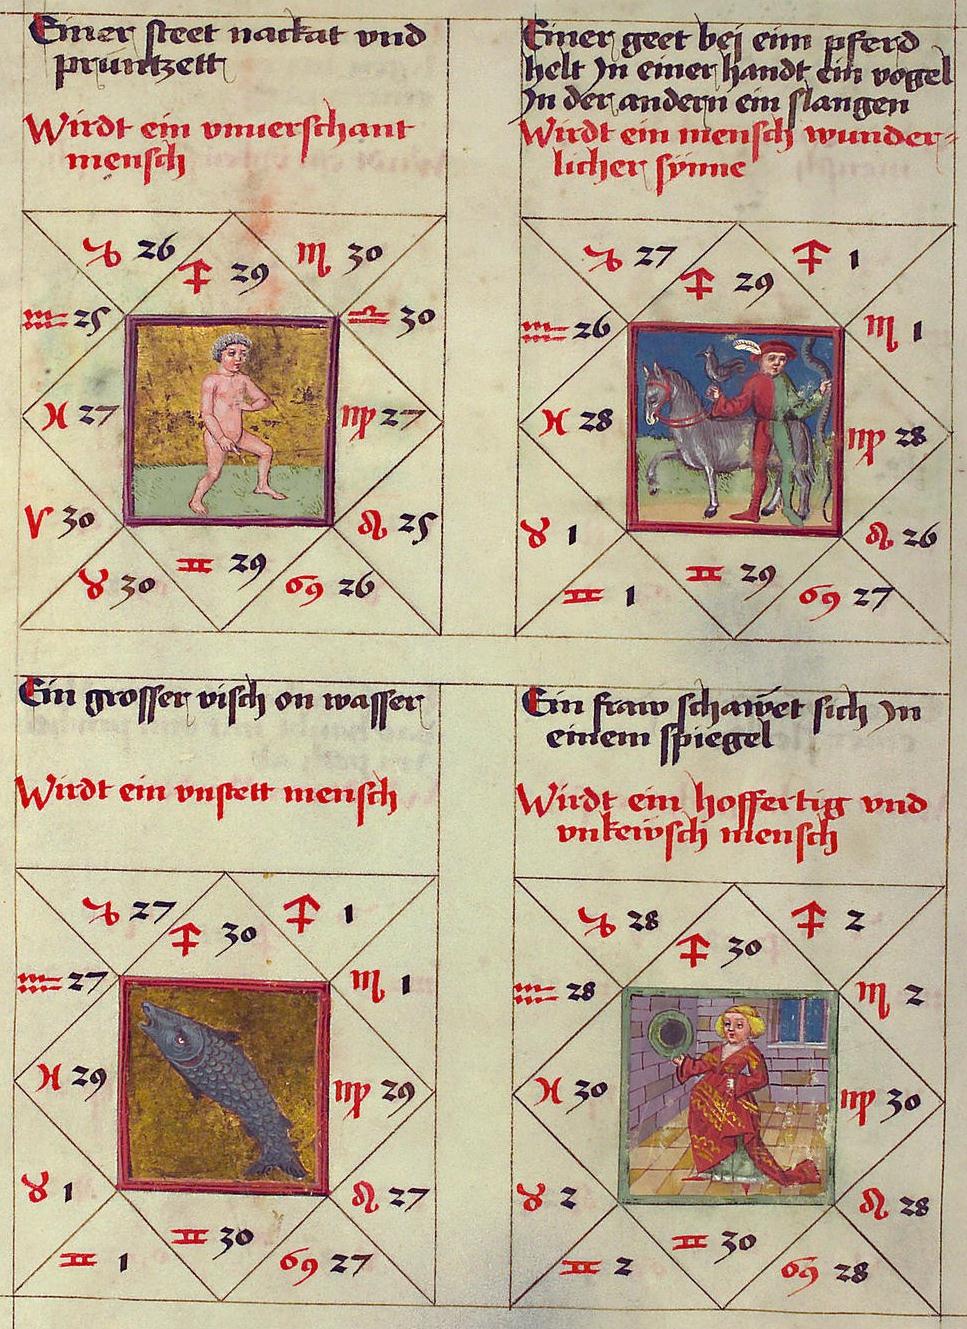 Einer steet nackat vnd
pruntzett
Wirdt ein vnuerschant
mensch
♑ 26
♐ 29
♏ 30
♒ 25
♎ 30
♓ 27
♍ 27
♈ 30
♌ 25
♉ 30
♊ 29
♋ 26
Einer geet bej eim pferd
helt In einer handt ein vogel
In der andern ein slangen
Wirdt ein mensch wunder-
licher synne
♑ 27
♐ 29
♐ 1
♒ 26
♏ 1
♓ 28
♍ 28
♉ 1
♌ 26
♊ 1
♊ 29
♋ 27
Ein grosser visch on wasser
Wirdt ein vnstett mensch
♑ 27
♐ 30
♐ 1
♒ 27
♏ 1
♓ 29
♍ 29
♉ 1
♌ 27
♊ 1
♊ 30
♋ 27
Ein fraw schawet sich In
einem spiegel
Wirdt ein hoffertig vnd
vnkewsch mensch
♑ 28
♐ 30
♐ 2
♒ 28
♏ 2
♓ 30
♍ 30
♉ 2
♌ 28
♊ 2
♊ 30
♋ 28